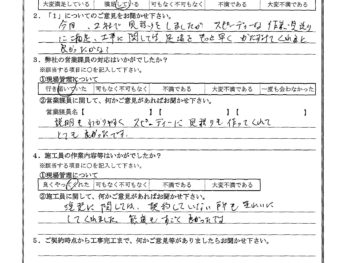 大変満足している 満足している 可もなく不可もなく 不満である 大変不満である
2．「1」についてのご意見をお聞かせ下さい。
今回、2社で見積りをしましたが スピーディーな
に 工事に関しては 足場を もっと早く かたずけてくれると
良かったかな！
3．弊社の営業課員の対応はいかがでしたか？
※該当する項目に○を記入して下さい。
①現場管理について
行き届いていた 可もなく不可もなく 不満である 大変不満である 一度も会わなかった
②営業課員に関して、何かご意見があればお聞かせ下さい。
営業課員名【 】【 】【 】
説明もわかりやすく スピーディーに見積りも作ってくれて
とても良かったです。
4．施工員の作業内容等はいかがでしたか？
※該当する項目に○を記入して下さい。
①現場管理について
良くやってくれた 可もなく不可もなく 不満である 大変不満である
②施工員に関して、何かご意見があればお聞かせ下さい。
塗装に関しては、契約していない所も きれいに
してくれました すごく良かったです
5．ご契約時点から工事完了まで、何かご意見等がありましたらお聞かせ下さい。